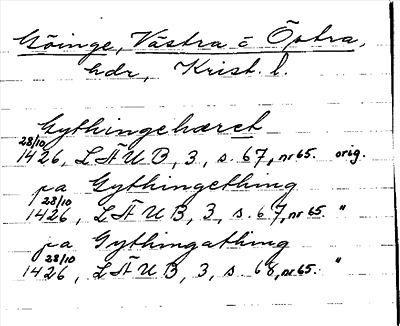 Göinge, Västra o Östra,
hdr, Krist. l.
Gythingehæret
28/10 1426, LÄUB, 3, s. 67, nr 65. orig.
pa Gythingething
28/10 1426, LÄUB, 3, s. 67, nr 65. "
pa Gythingathing
28/10 1426, LÄUB, 3, s. 68, nr 65. "